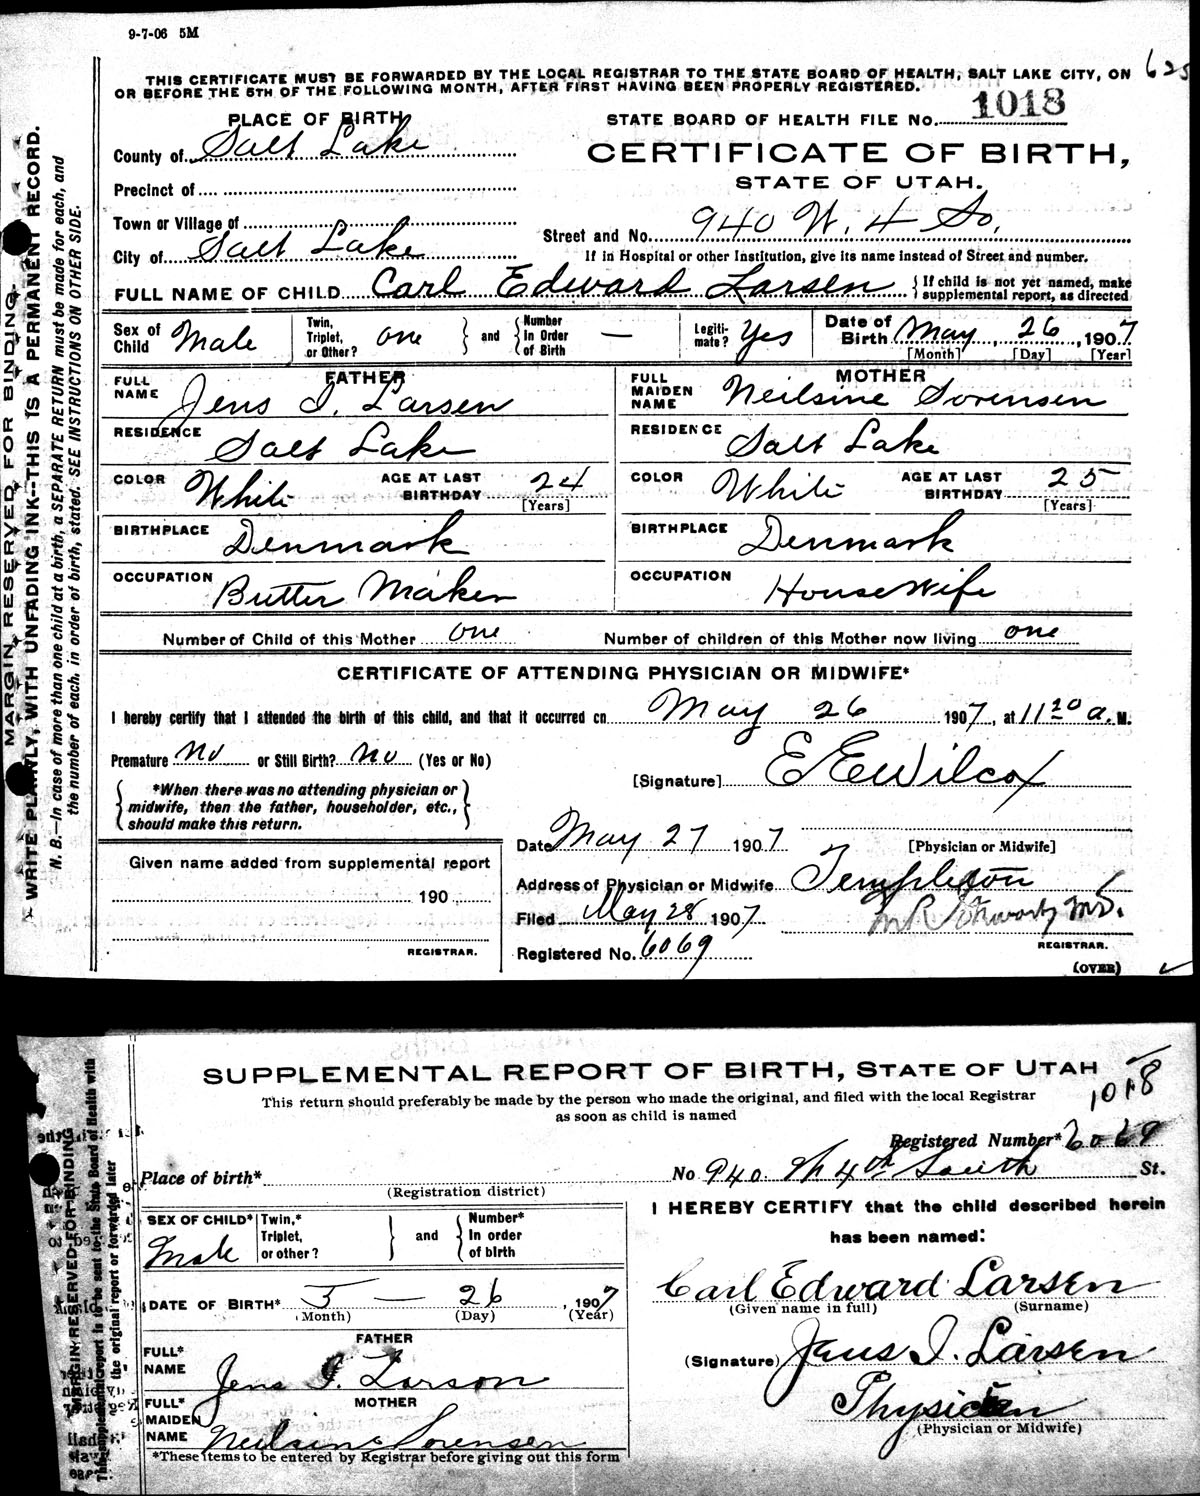 9-7-06 5M
625
THIS CERTIFICATE MUST BE FORWARDED BY THE LOCAL REGISTRAR TO THE STATE BOARD OF HEALTH, SALT LAKE CITY, ON
OR BEFORE THE 5TH OF THE FOLLOWING MONTH, AFTER FIRST HAVING BEEN PROPERLY REGISTERED.
STATE BOARD OF HEALTH FILE No. 1018
PLACE OF BIRTH
County of Salt Lake
CERTIFICATE OF BIRTH,
STATE OF UTAH.
Precinct of
Town or Village of
Street and No. 940 W. 4 So.
City of Salt Lake
If in Hospital or other Institution, give its name instead of Street and number.
FULL NAME OF CHILD Carl Edward Larsen { If child is not yet named, make supplemental report, as directed
Sex of Child Male
Twin, Triplet, or Other? one } and { Number In Order of Birth —
Legiti-mate? Yes
Date of Birth May, 26, 1907
[Month] [Day] [Year]
FATHER
FULL NAME Jens I. Larsen
RESIDENCE Salt Lake
COLOR White AGE AT LAST BIRTHDAY 24
[Years]
BIRTHPLACE Denmark
OCCUPATION Butter Maker
MOTHER
FULL MAIDEN NAME Neilsine Sorensen
RESIDENCE Salt Lake
COLOR White AGE AT LAST BIRTHDAY 25
[Years]
BIRTHPLACE Denmark
OCCUPATION Housewife
Number of Child of this Mother one Number of children of this Mother now living one
CERTIFICATE OF ATTENDING PHYSICIAN OR MIDWIFE*
I hereby certify that I attended the birth of this child, and that it occurred on May 26 1907, at 11 20 a. M.
Premature No or Still Birth? No (Yes or No)
[Signature] E E Wilcox
{ *When there was no attending physician or
midwife, then the father, householder, etc.,
should make this return. }
Date May 27 1907
[Physician or Midwife]
Given name added from supplemental report
190
REGISTRAR.
Address of Physician or Midwife Templeton
Filed May 28 1907
M.D.
Registered No. 6069
REGISTRAR.
(OVER)
MARGIN RESERVED FOR BINDING
WRITE PLAINLY, WITH UNFADING INK—THIS IS A PERMANENT RECORD.
N. B.—In case of more than one child at a birth, a SEPARATE RETURN must be made for each, and
the number of each, in order of birth, stated. SEE INSTRUCTIONS ON OTHER SIDE.
SUPPLEMENTAL REPORT OF BIRTH, STATE OF UTAH
1018
This return should preferably be made by the person who made the original, and filed with the local Registrar
as soon as child is named
Registered Number* 6069
Place of birth* No 940. W 4th South St.
(Registration district)
SEX OF CHILD* Male
Twin,* Triplet, or other? } and { Number* In order of birth
DATE OF BIRTH* 5 — 26, 1907
(Month) (Day) (Year)
FATHER
FULL* NAME Jens I. Larson
MOTHER
FULL* MAIDEN NAME Neilsine Sorensen
*These items to be entered by Registrar before giving out this form
I HEREBY CERTIFY that the child described herein
has been named:
Carl Edward Larsen
(Given name in full) (Surname)
(Signature) Jens I. Larsen
Physician
(Physician or Midwife)
MARGIN RESERVED FOR BINDING
This supplemental report is to be sent to the State Board of Health with
the original report or forwarded later